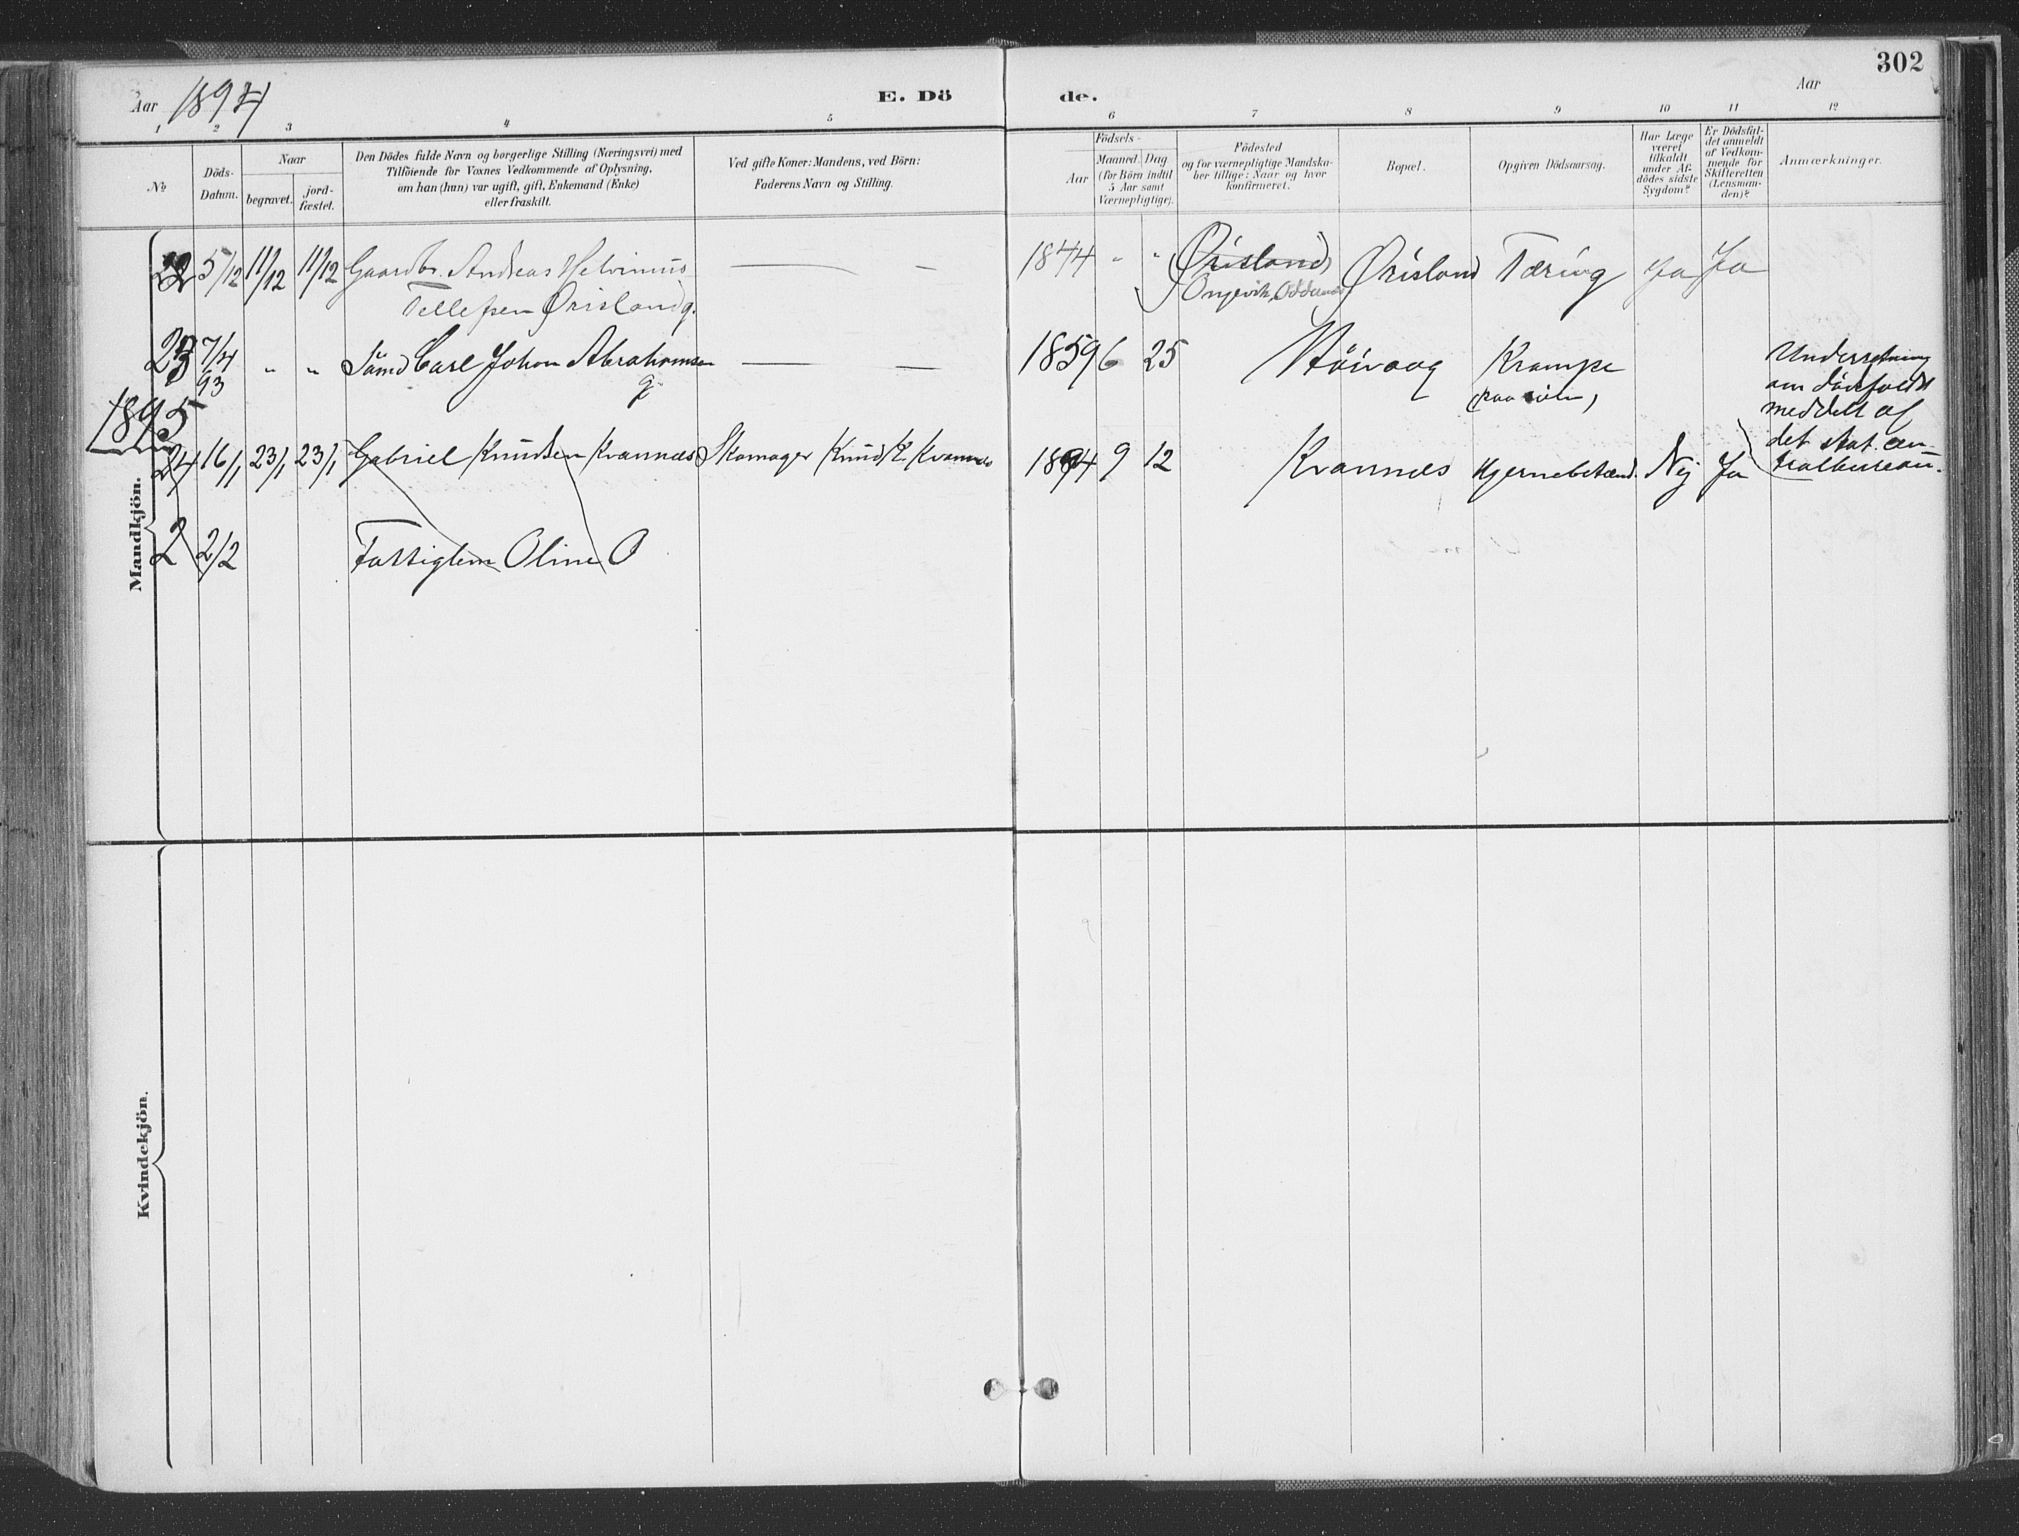 302
Aar 1894
E. Dö de.
Aar
1 2 3 4 5 6 7 8 9 10 11 12
No
Döds-
Datum.
Naar
begravet.
jord-
fæstet.
Den Dödes fulde Navn og borgerlige Stilling (Næringsvei) med
Tilföiende for Voxnes Vedkommende af Oplysning,
om han (hun) var ugift, gift, Enkemand (Enke)
eller fraskilt.
Ved gifte Koner: Mandens, ved Börn:
Faderens Navn og Stilling.
Födsels-
Aar
Maaned. Dag
(for Börn indtil
5 Aar samt
Værnepligtige).
Födested
og for værnepligtige Mandska-
ber tillige: Naar og hvor
konfirmeret.
Bopæl.
Opgiven Dödsaarsag.
Har Læge
været
tilkaldt
under Af-
dödes sidste
Sygdom?
Er Dödsfal-
det anmeldt
af Vedkom-
mende for
Skifteretten
(Lensman-
den)?
Anmærkninger.
22 5/12 11/12 11/12 Gaardbr. Andreas Helvinius — — 1844 " " Ørisland Ørisland Tæring Ja Ja
Tellefsen Ørisland g.
23 7/4 " " Sömd Carl Johan Abrahamsen — — 1859 6 25 Höivaag Krampe
93
g
Underretning
om dödsfaldet
meddelt af
det stat. cen-
tralbureau.
1895
24 16/1 23/1 23/1 Gabriel Knudsen Kvannes Skomager Knud K. Kvannes 1894 9 12 Kvannes Hjernebetænd. Nej Ja
2 2/2 Fattiglem Oline O
Mandkjön.
Kvindekjön.